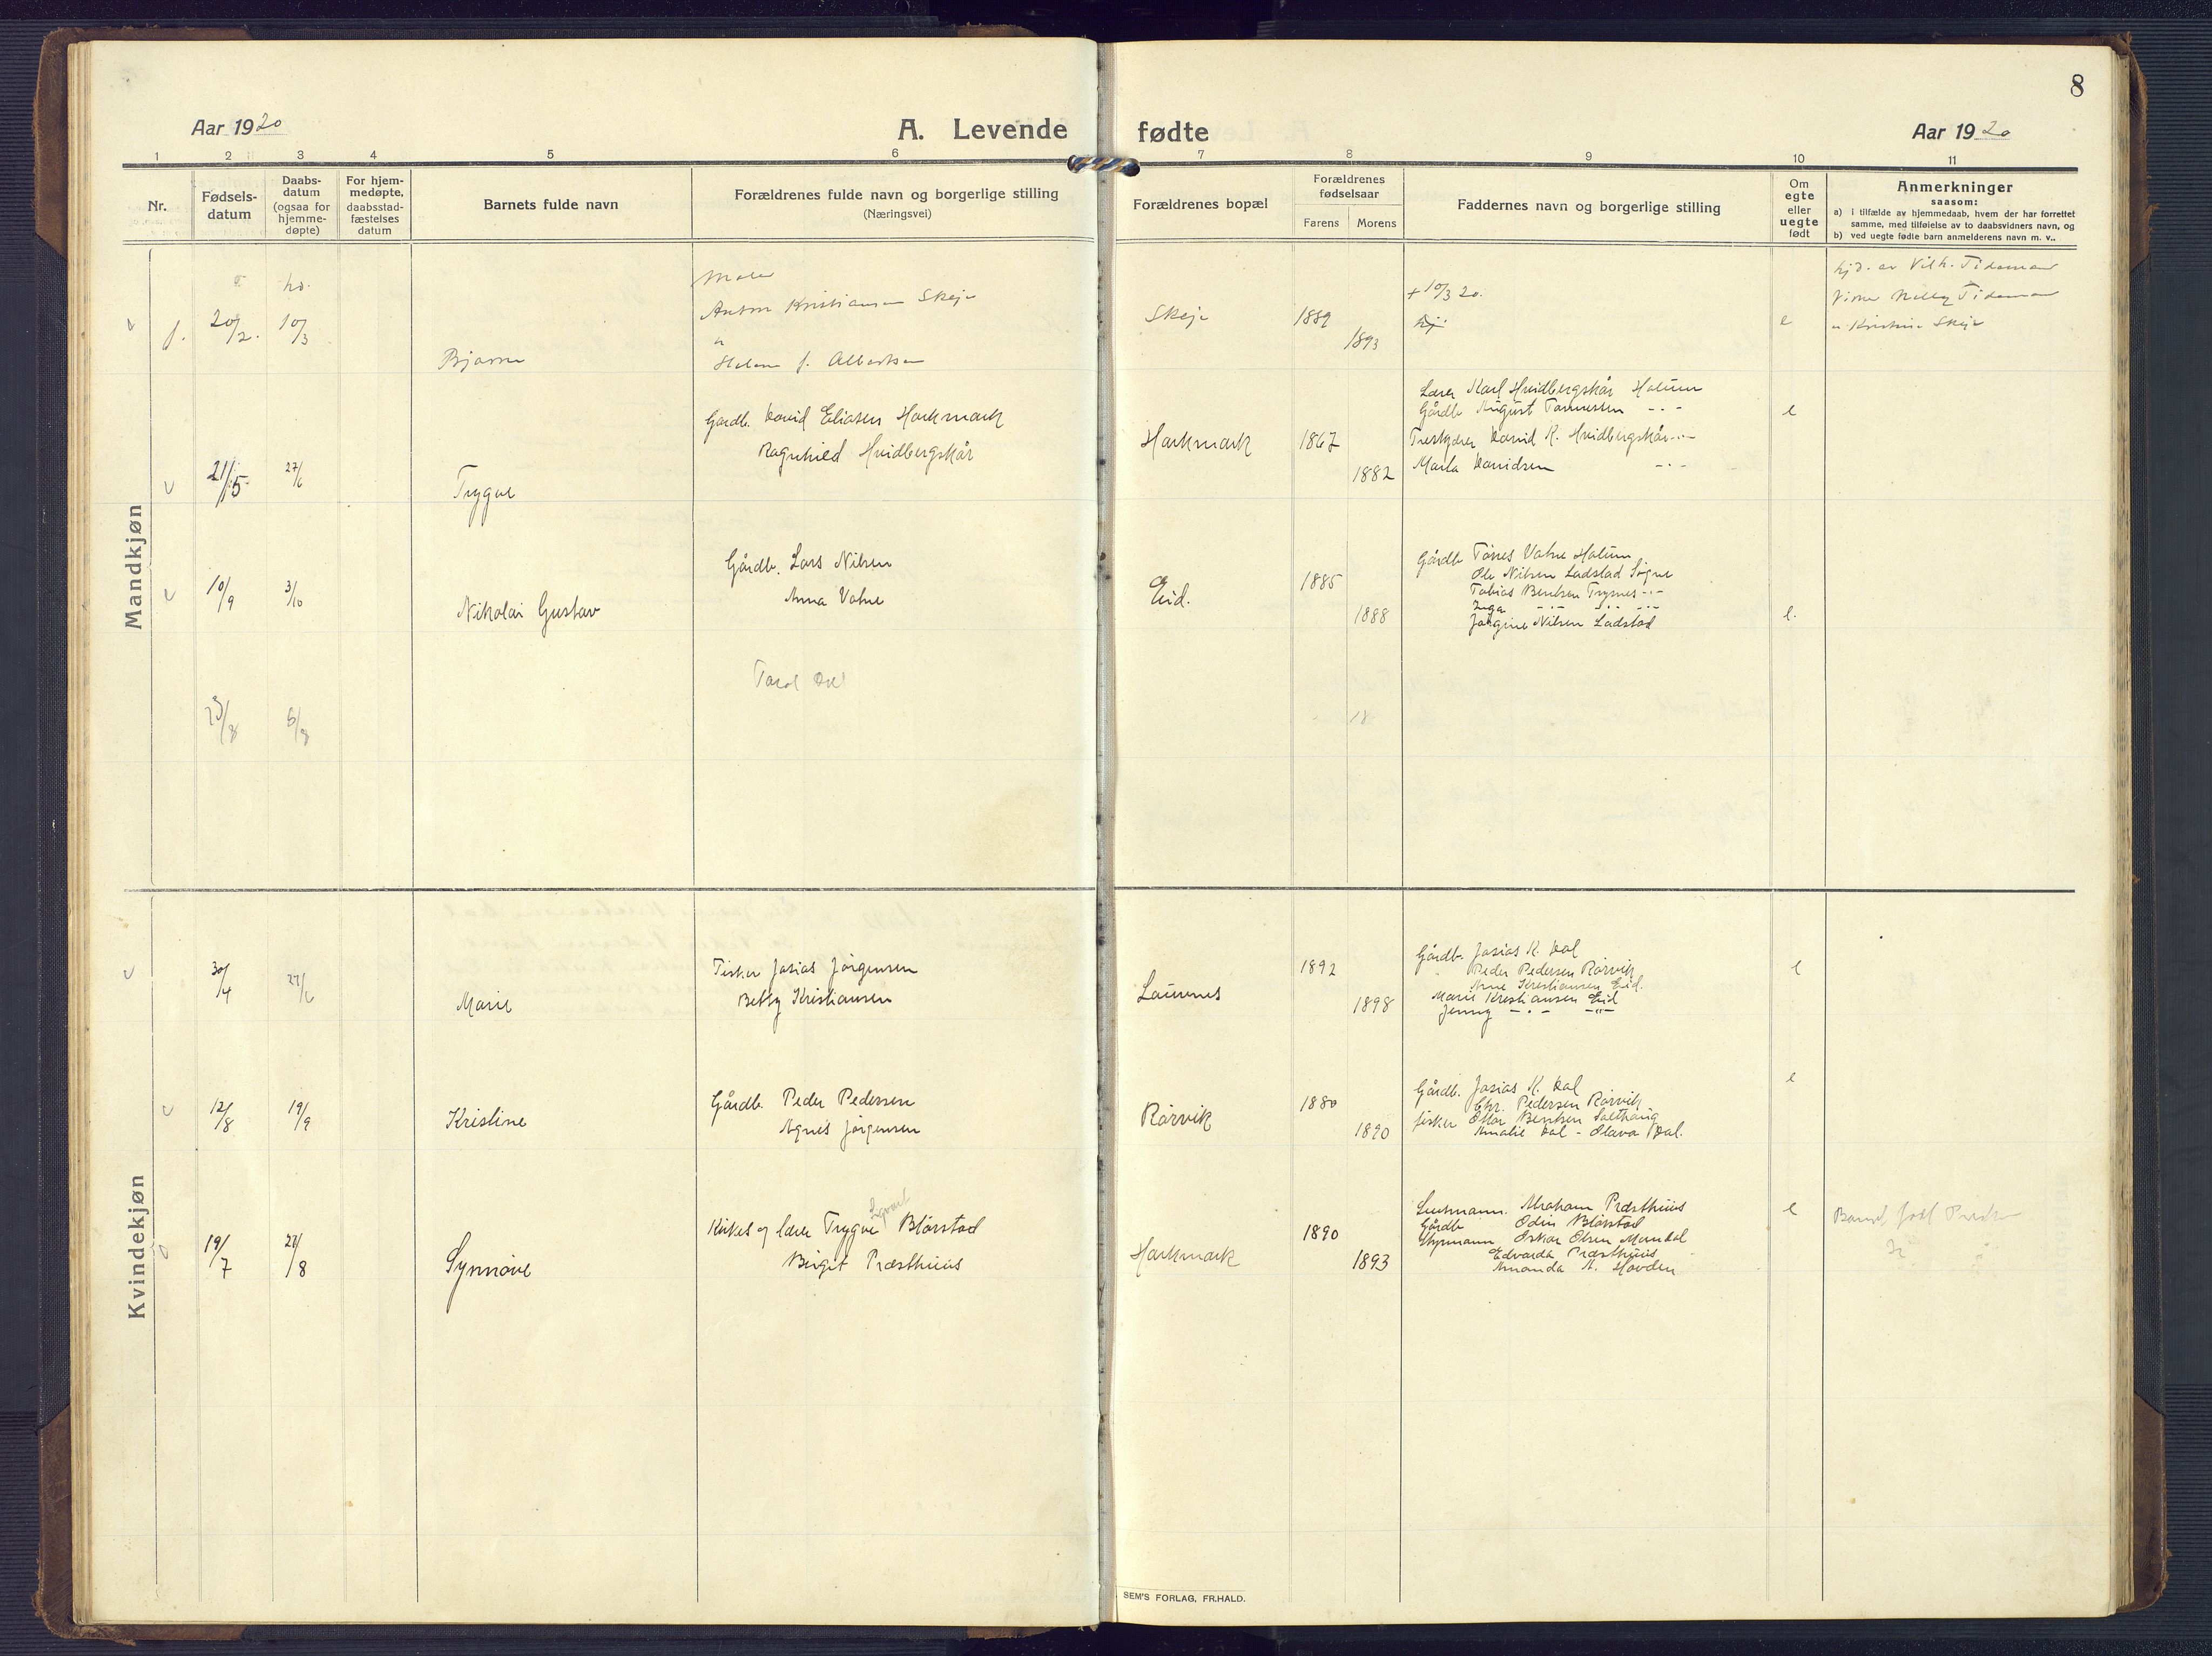 8
Aar 1920
A. Levende fødte
Aar 1920
1 2 3 4 5 6 7 8 9 10 11
Nr.
Fødsels-
datum
Daabs-
datum
(ogsaa for
hjemme-
døpte)
For hjem-
medøpte,
daabsstad-
fæstelses
datum
Barnets fulde navn
Forældrenes fulde navn og borgerlige stilling
(Næringsvei)
Forældrenes bopæl
Forældrenes
fødselsaar
Farens Morens
Faddernes navn og borgerlige stilling
Om
egte
eller
uegte
født
Anmerkninger
saasom:
a) i tilfælde av hjemmedaab, hvem der har forrettet
samme, med tilføielse av to daabsvidners navn, og
b) ved uegte fødte barn anmelderens navn m. v..
Mandkjøn
hd.
20/2. 10/3
Bjarne
Maler
Anton Kristiansen Skeje
Helene f. Albertsen
Skeje
1889
1893
+ 10/3 20.
e
hjd. av Vilh. Tideman
Nelly Tideman
Kristine Skeje
21/5 27/6
Trygve
Gardb. David Eliasen Harkmark
Ragnhild Hvidbergskår
Harkmark
1867
1882
Lærer Karl Hvidbergskår Halum
Gårdb August Tønnessen -·-
David K. Hvidbergskår -·-
Marla Davidsen -·-
e
10/9 3/10
Nikolai Gustav
Gårdb. Lars Nilsen
Anna Vatne
Eid.
1885
1888
Gårdb Tønes Vatne Halum
Ole Nilsen Ladstad Søgne
Tobias Bentsen Trysnes -·-
Inga -·- -·-
Jørgine Nilsen Ladstad
e.
23/8
18
Kvindekjøn
30/4 27/6
Marie
Fisker Jasias Jørgensen
Betsy Kristiansen
Launes
1892
1898
Gårdb. Jasias K. Dal
Peder Pedersen Rørvik
Arne Kristiansen Eid.
Marie Kristiansen Eid
Jenny -·- -"-
e
12/8 19/9
Kristine
Gårdb. Peder Pedersen
Agnes Jørgensen
Rørvik
1880
1890
Gårdb. Jasias K. Dal
Chr. Pedersen Rørvik
fisker Ottar Bentsen Salthaug
Amalie Dal - Olava Dal.
e
19/7 28/8
Synnøve
Kirkes og lærer Trygve Sigvart Blørstad
Birgit Præsthuus
Harkmark
1890
1893
Abraham Præsthuus
Gårdb Odin Blørstad
Styrmann Oskar Olsen Mandal
Edvarda Præsthuus
Amanda A. Hovden
e
SEM'S FORLAG, FR.HALD.